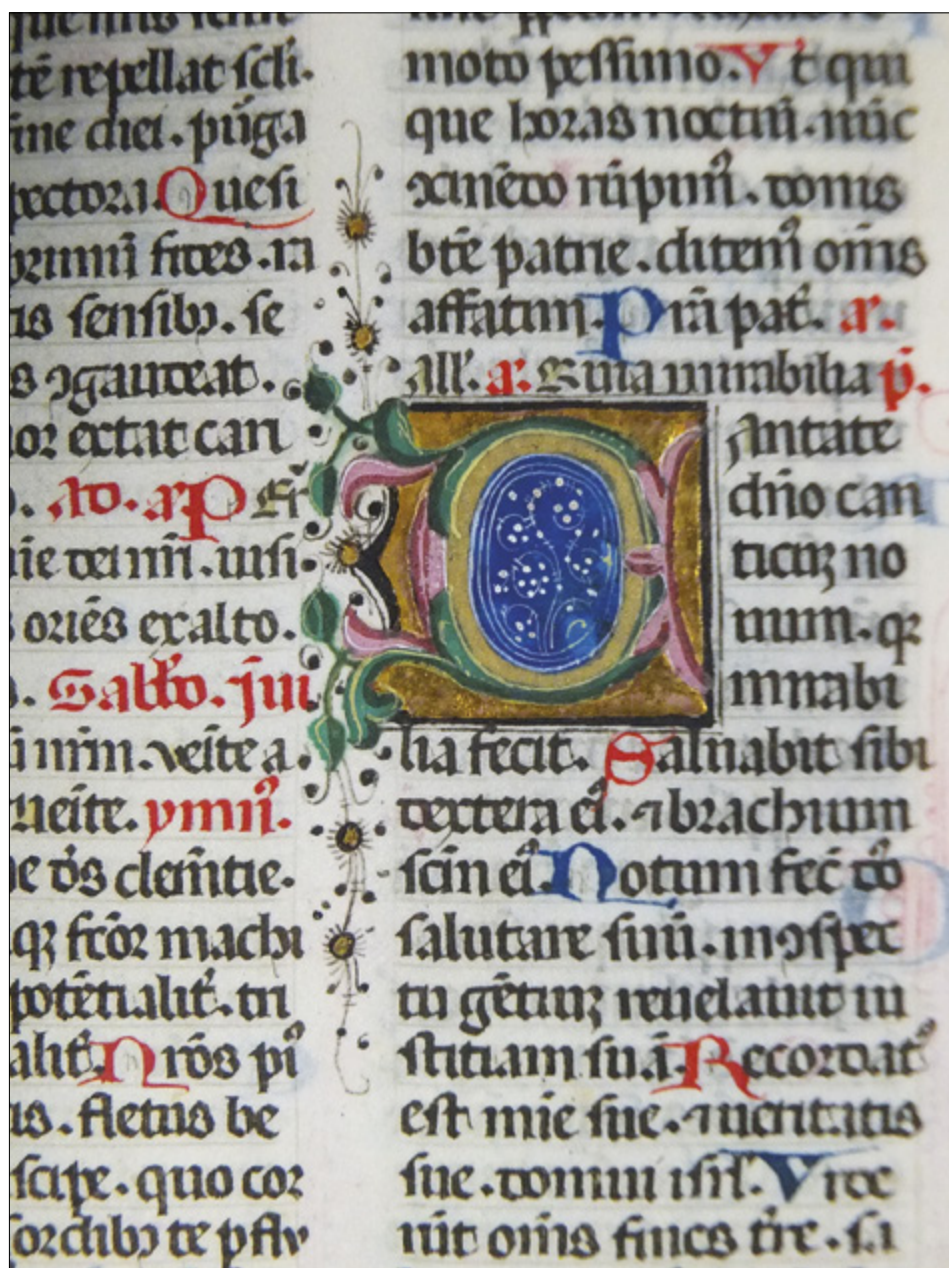 tē repellat scli.
ine diei. pūga
pectora. Quesi
sensibꝫ. se
ꝯgaudeat.
or extat cari
Ad. ar. P
oriēs exalto.
nr̄m. veīte a
ueīte. ymnꝰ.
e dꝰs clemētie.
qꝫ frōr machi
potētialit̄. tri
alit̄. Nrōs pi
is. fletus be
scipe. quo cor
ordibꝫ te pflv
moto pessimo. Vt qui
que horas noctiū. nūc
ꝯcinēdo rūpimꝰ. donis
btē patrie. ditemꝰ oīns
affatim. Prā pat̄. ar.
all'. a. Quia mirabilia p̄.
Cantate
dn̄o can
ticuꝫ no
uum. qꝛ
mirabi
lia fecit. Saluabit sibi
dextera eiꝰ. ⁊ brachium
scm̄ eiꝰ. Notum fec̄ dn̄s
salutare suū. in ꝯspec
tu gētiuꝫ reuelauit iu
stitiam suā. Recordatꝰ
est mie sue. ⁊ ueritatis
sue. domui isrl'. Vide
rūt oīns fines tr̄e.